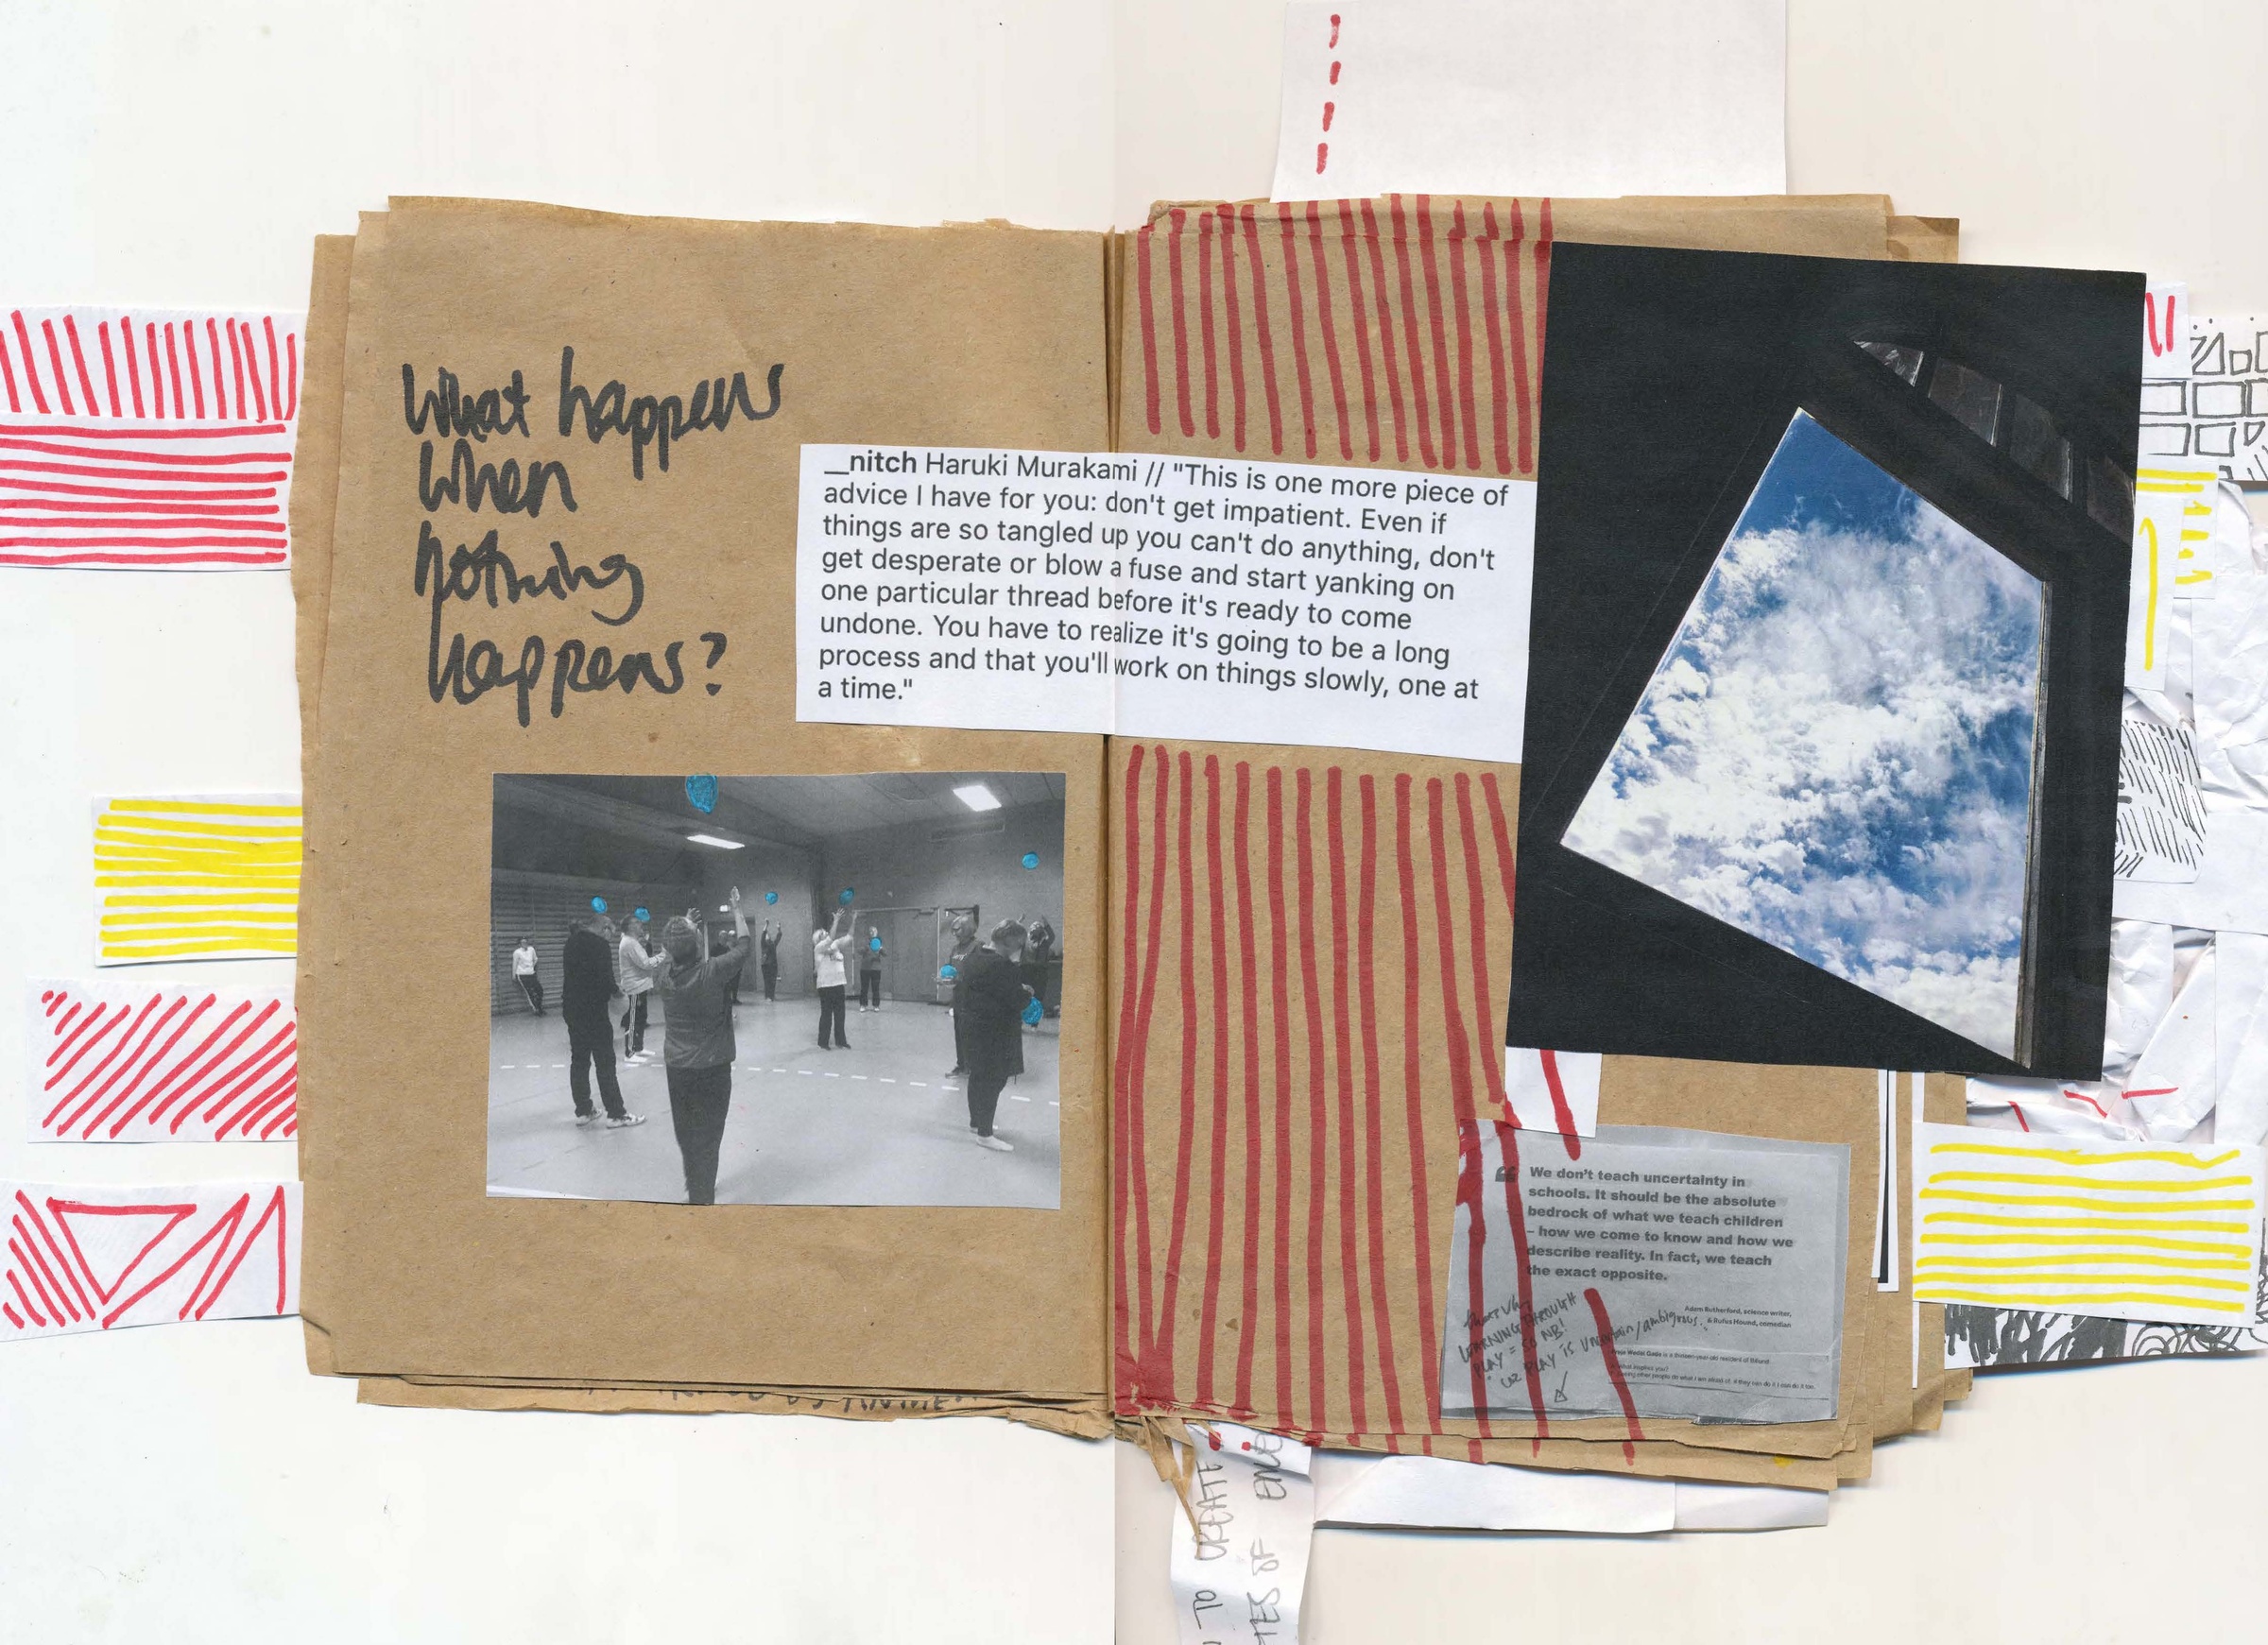 What happens
When
nothing
happens?
__nitch Haruki Murakami // "This is one more piece of
advice I have for you: don't get impatient. Even if
things are so tangled up you can't do anything, don't
get desperate or blow a fuse and start yanking on
one particular thread before it's ready to come
undone. You have to realize it's going to be a long
process and that you'll work on things slowly, one at
a time."
“ We don't teach uncertainty in
schools. It should be the absolute
bedrock of what we teach children
– how we come to know and how we
describe reality. In fact, we teach
the exact opposite.
Adam Rutherford, science writer,
& Rufus Hound, comedian
LEARNING THROUGH
PLAY = SO NB!
PLAY IS uncertain/ambiguous.
is a thirteen-year-old resident of Billund
What inspires you?
Seeing other people do what I am afraid of. If they can do it I can do it too.
TO CREATE
OF